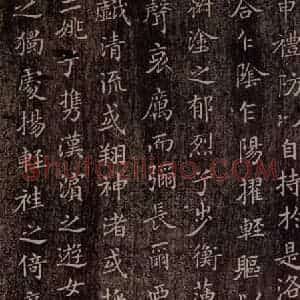 申禮防以自持於是洛
合乍陰乍陽擢輕軀以
塗之郁烈兮步蘅薄
聲哀厲而彌長爾
戲清流或翔神渚或
二姚兮攜漢濱之遊女
之獨處揚輕袿之倚